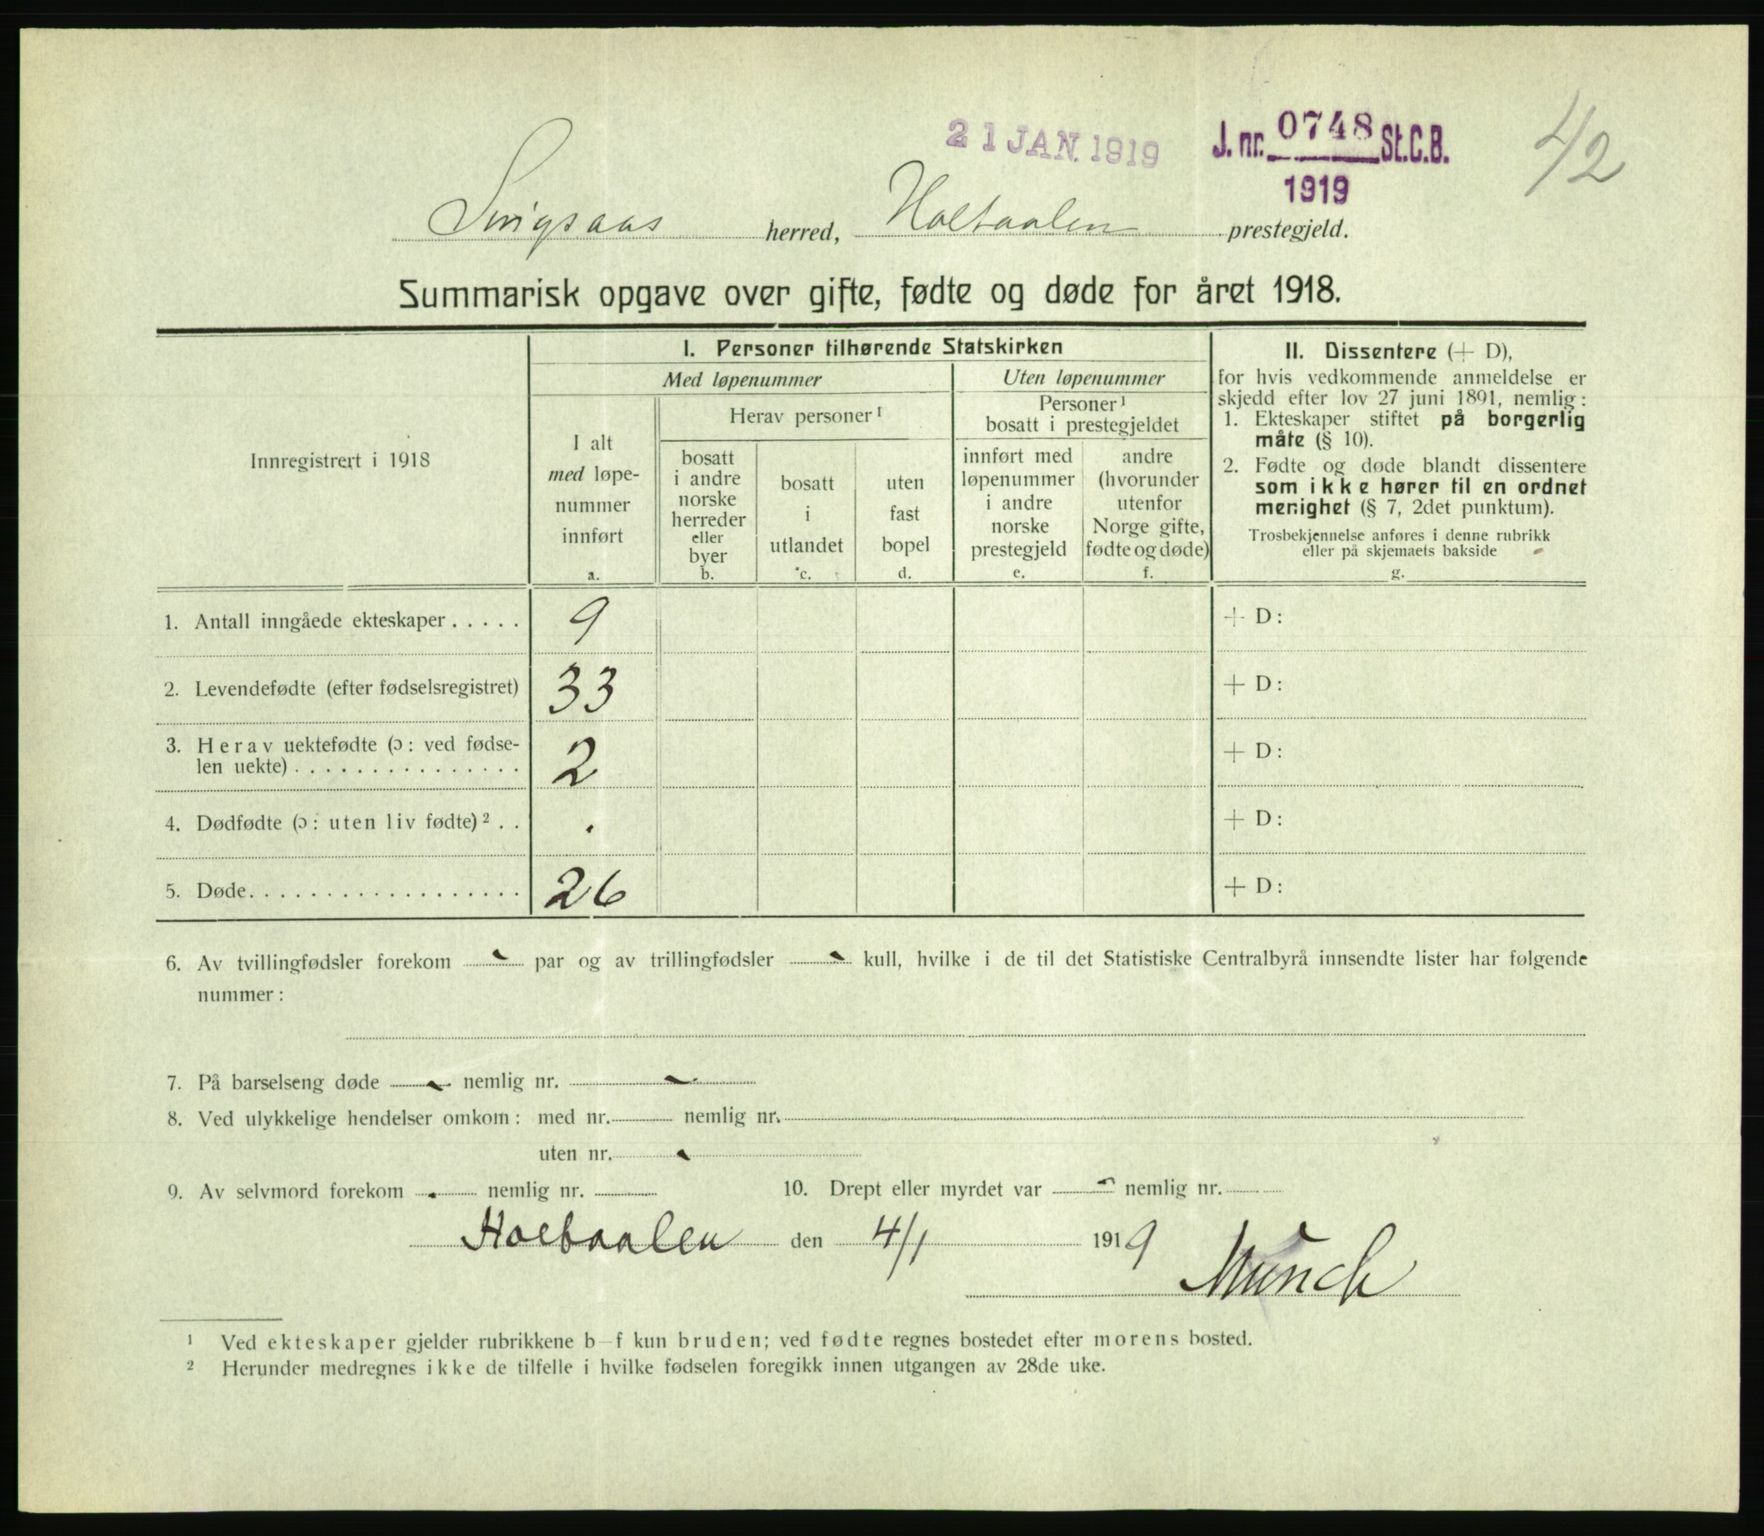 21 JAN. 1919
J. nr. 0748 St.C.B.
1919
42
Singsaas herred, Holtaalen prestegjeld.
Summarisk opgave over gifte, fødte og døde for året 1918.
Innregistrert i 1918
I. Personer tilhørende Statskirken
Med løpenummer
Uten løpenummer
I alt
med løpe-
nummer
innført
a.
Herav personer ¹
bosatt
i andre
norske
herreder
eller
byer
b.
bosatt
i
utlandet
c.
uten
fast
bopel
d.
Personer ¹
bosatt i prestegjeldet
innført med
løpenummer
i andre
norske
prestegjeld
e.
andre
(hvorunder
utenfor
Norge gifte,
fødte og døde)
f.
II. Dissentere (+ D),
for hvis vedkommende anmeldelse er
skjedd efter lov 27 juni 1891, nemlig:
1. Ekteskaper stiftet på borgerlig
måte (§ 10).
2. Fødte og døde blandt dissentere
som ikke hører til en ordnet
menighet (§ 7, 2det punktum).
Trosbekjennelse anføres i denne rubrikk
eller på skjemaets bakside
g.
1. Antall inngåede ekteskaper ..... 9 + D:
2. Levendefødte (efter fødselsregistret) 33 + D:
3. Herav uektefødte (ɔ: ved fødse-
len uekte) ............... 2 + D:
4. Dødfødte (ɔ: uten liv fødte) ² .. . + D:
5. Døde .................. 26 + D:
6. Av tvillingfødsler forekom - par og av trillingfødsler - kull, hvilke i de til det Statistiske Centralbyrå innsendte lister har følgende
nummer:
7. På barselseng døde - nemlig nr. -
8. Ved ulykkelige hendelser omkom: med nr. nemlig nr.
uten nr. -
9. Av selvmord forekom . nemlig nr. 10. Drept eller myrdet var - nemlig nr.
Holtaalen den 4/1 1919
Munch
¹ Ved ekteskaper gjelder rubrikkene b–f kun bruden; ved fødte regnes bostedet efter morens bosted.
² Herunder medregnes ikke de tilfelle i hvilke fødselen foregikk innen utgangen av 28de uke.